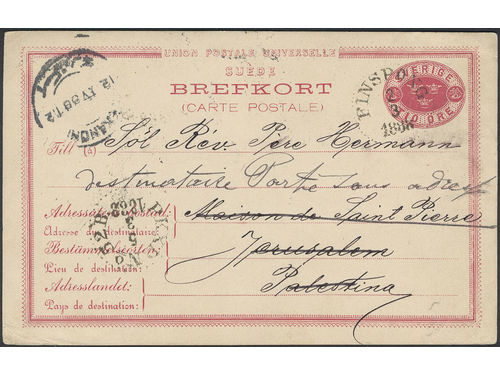 UNION POSTALE UNIVERSELLE
SUÈDE
BREFKORT
(CARTE POSTALE)
SVERIGE
10 ÖRE
FINSPO
1888
12 IV 88 T2
Till (à) Sol Rév. Père Hermann
destinataire Parti sans adresse
Adressatens bostad: Maison de Saint Pierre
Adresse du destinataire:
Bestämmelseorten: Jerusalem
Lieu de destination:
Adresslandet: Palestina
Pays de destination: